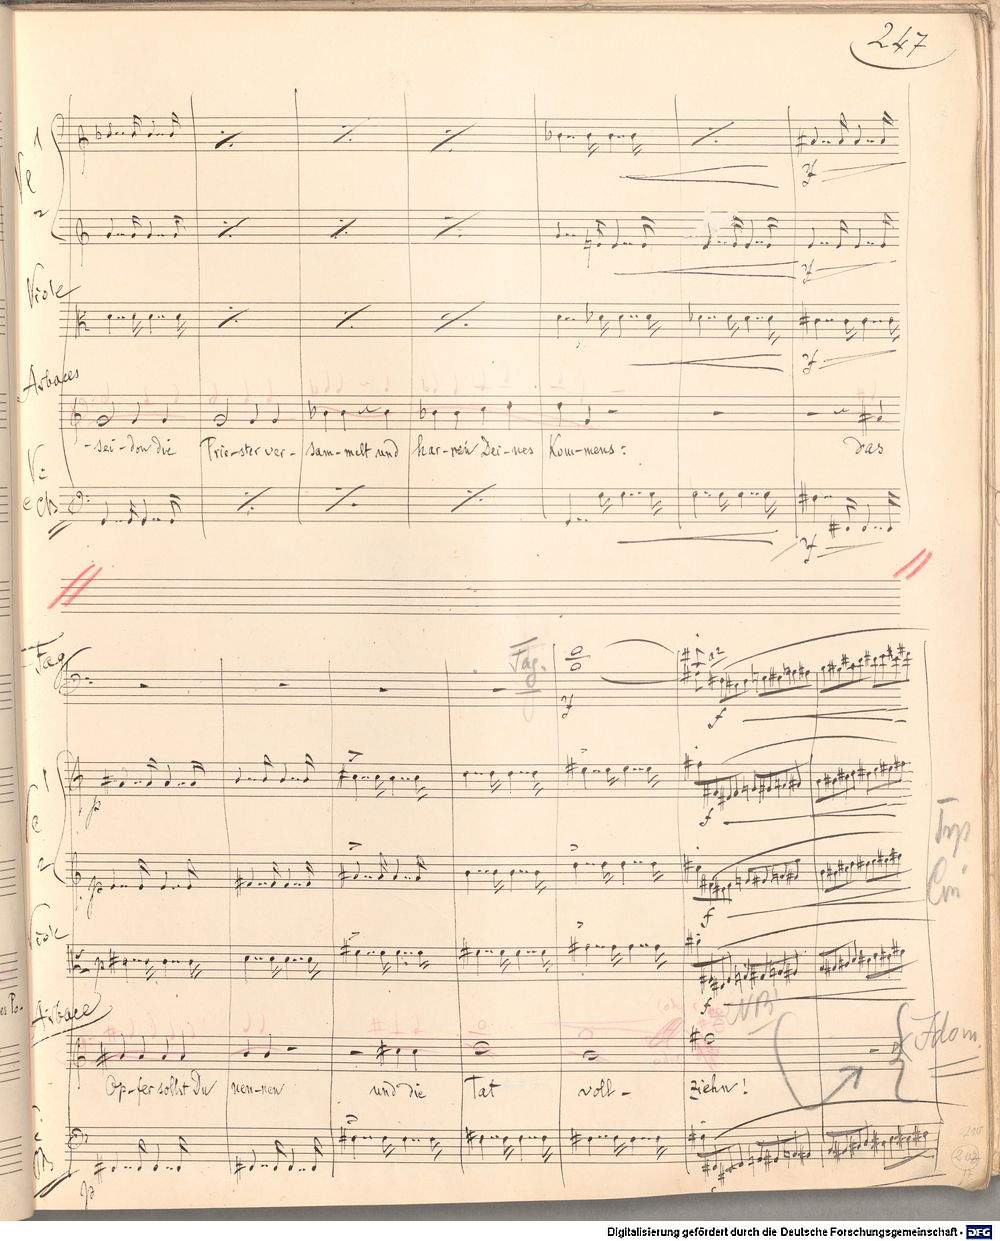 247
Ve
1
2
Viole
Arbaces
-sei-don die Prie-ster ver-sam-melt und har-ren Dei-nes Kom-mens: Das
V:
e CB
Fag
Fag.
a2
f
Ve
1
2
p
f
p
f
Viole
p
f
Arbace
NB!
Idom.
Op-fer sollst Du nen-nen und die Tat voll-ziehn!
p
Digitalisierung gefördert durch die Deutsche Forschungsgemeinschaft - DFG